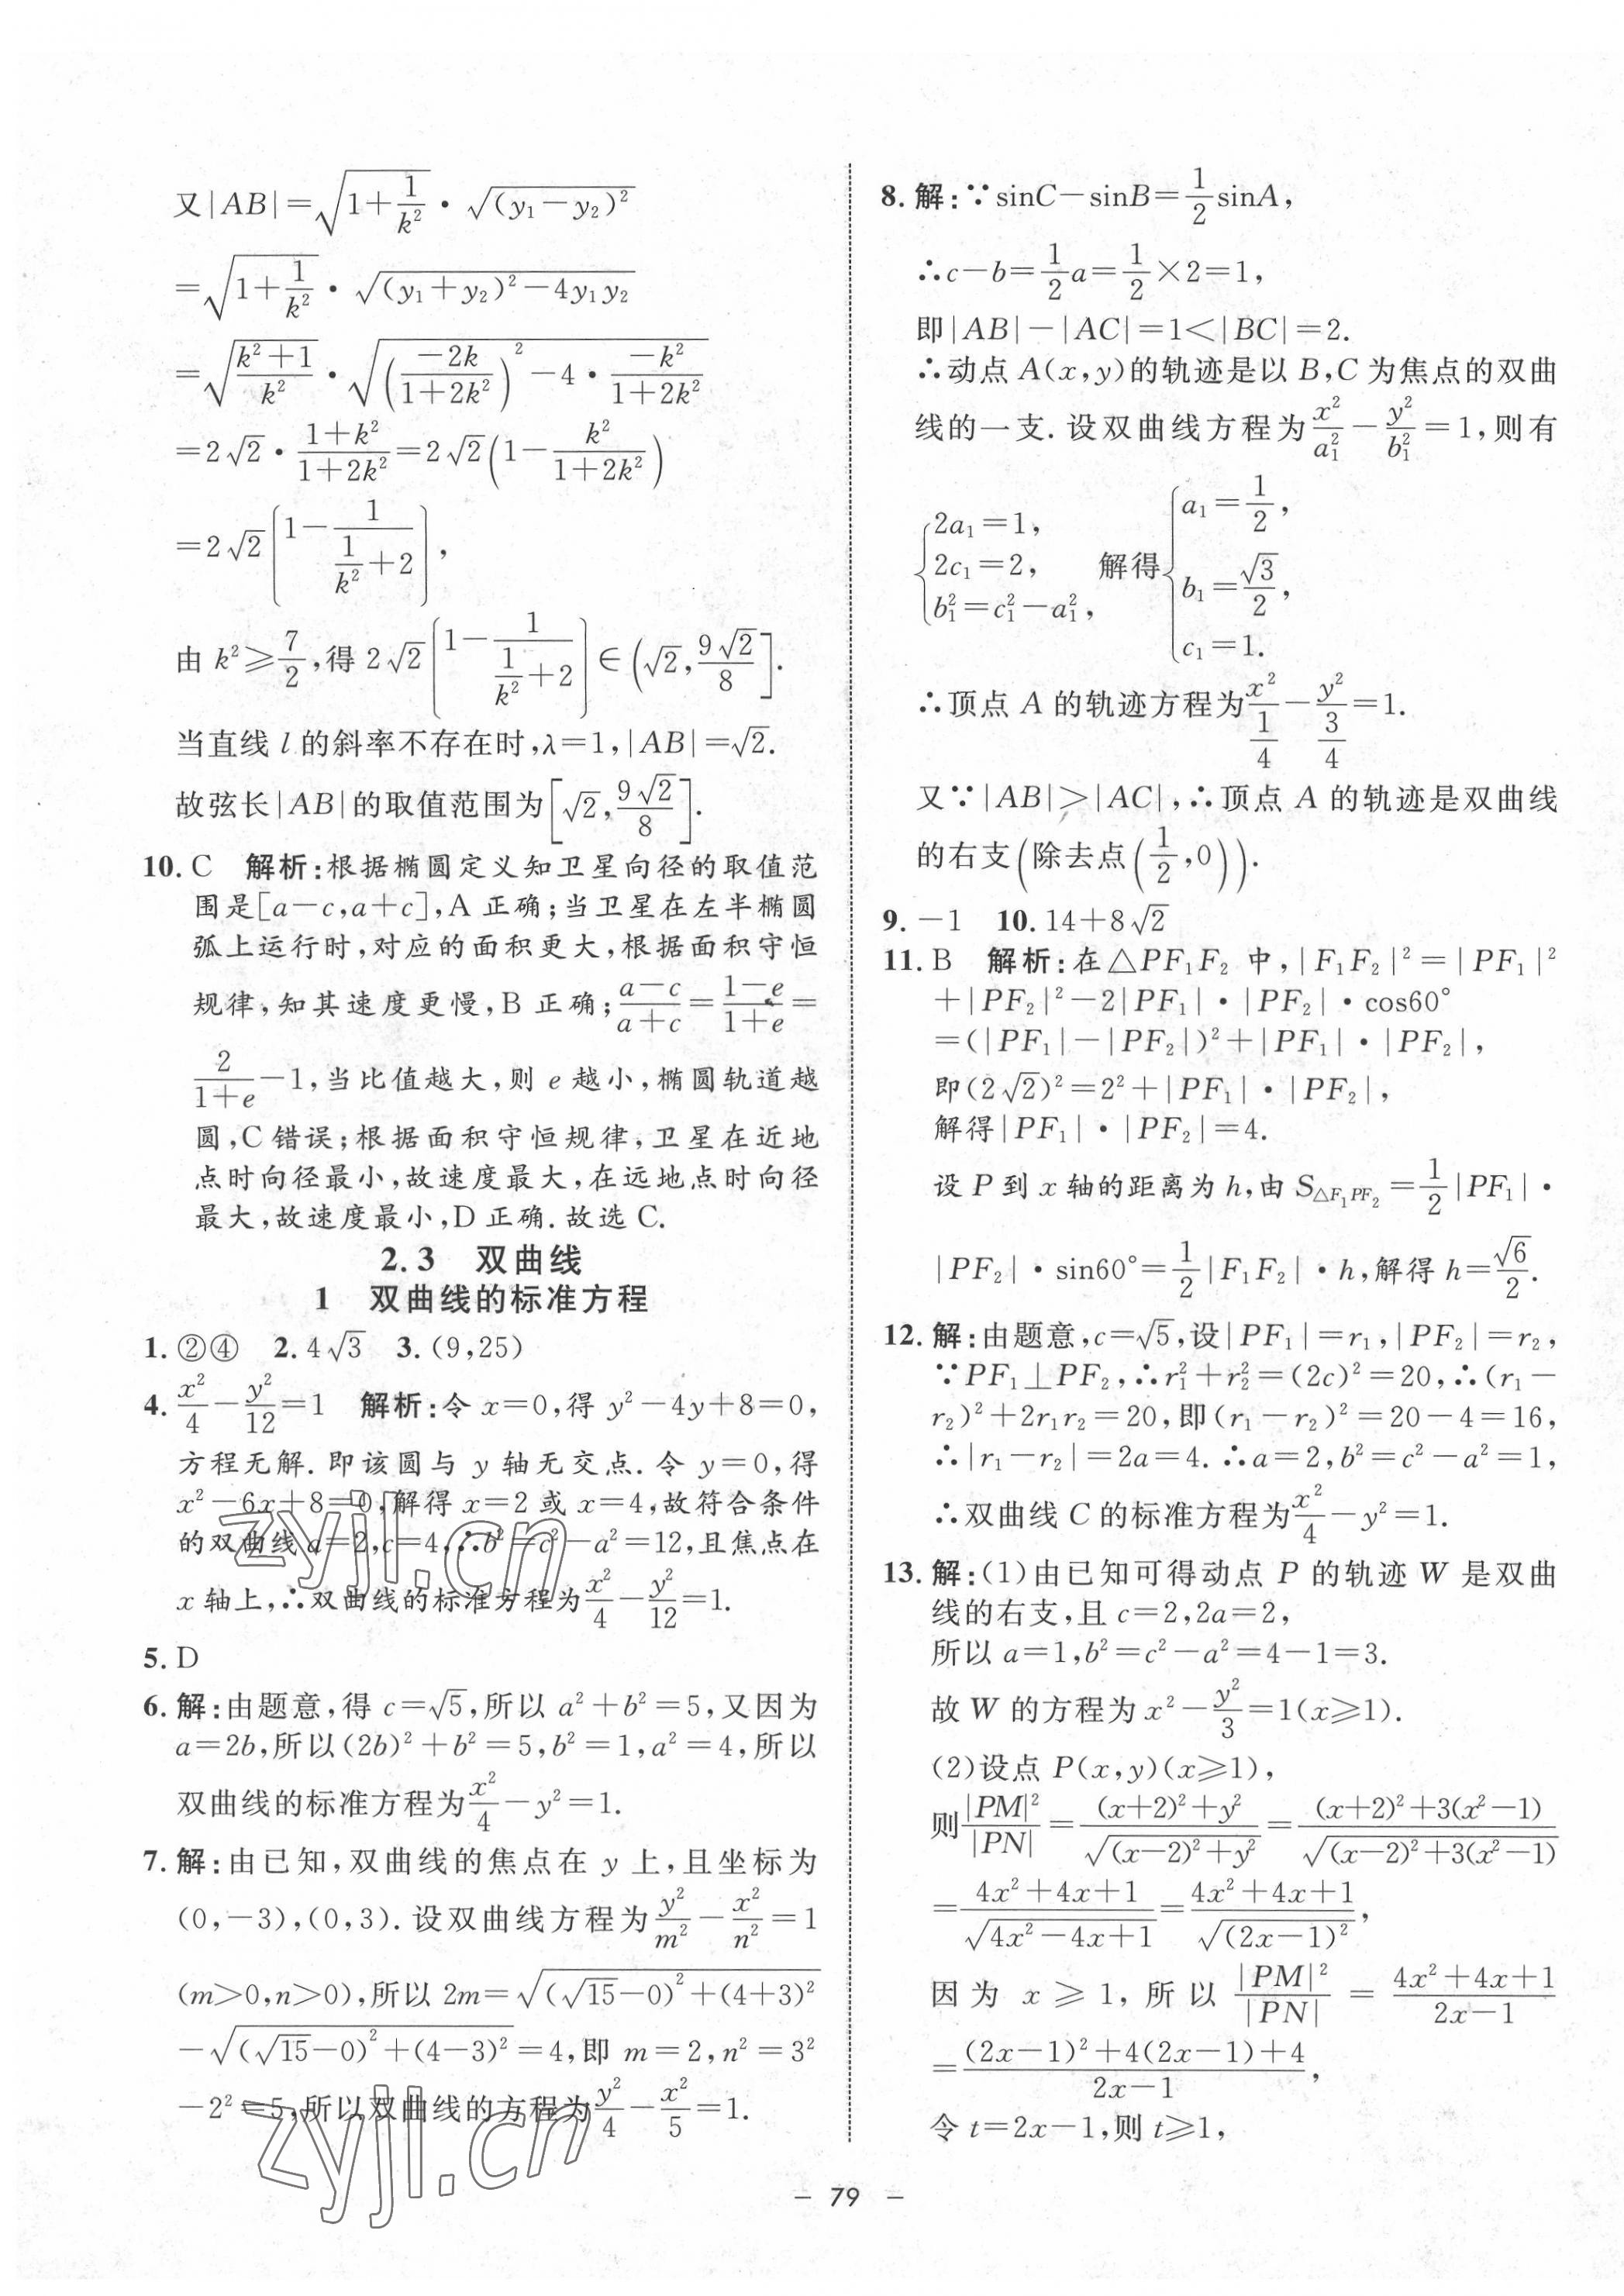 又|AB|=√(1+1/k²)·√((y₁-y₂)²)
=√(1+1/k²)·√((y₁+y₂)²-4y₁y₂)
=√((k²+1)/k²)·√((-2k/(1+2k²))²-4·(-k²)/(1+2k²))
=2√2·(1+k²)/(1+2k²)=2√2(1-k²/(1+2k²))
=2√2[1-1/(1/k²+2)],
由 k²≥7/2,得 2√2[1-1/(1/k²+2)]∈(√2,9√2/8].
当直线 l 的斜率不存在时,λ=1,|AB|=√2.
故弦长|AB|的取值范围为[√2,9√2/8].
10. C 解析:根据椭圆定义知卫星向径的取值范
围是[a-c,a+c],A 正确;当卫星在左半椭圆
弧上运行时,对应的面积更大,根据面积守恒
规律,知其速度更慢,B 正确;(a-c)/(a+c)=(1-e)/(1+e)=
2/(1+e)-1,当比值越大,则 e 越小,椭圆轨道越
圆,C 错误;根据面积守恒规律,卫星在近地
点时向径最小,故速度最大,在远地点时向径
最大,故速度最小,D 正确.故选 C.
2.3 双曲线
1 双曲线的标准方程
1. ②④ 2. 4√3 3. (9,25)
4. x²/4-y²/12=1 解析:令 x=0,得 y²-4y+8=0,
方程无解.即该圆与 y 轴无交点.令 y=0,得
x²-6x+8=0,解得 x=2 或 x=4,故符合条件
的双曲线 a=2,c=4,∴b²=c²-a²=12,且焦点在
x 轴上,∴双曲线的标准方程为x²/4-y²/12=1.
5. D
6. 解:由题意,得 c=√5,所以 a²+b²=5,又因为
a=2b,所以(2b)²+b²=5,b²=1,a²=4,所以
双曲线的标准方程为x²/4-y²=1.
7. 解:由已知,双曲线的焦点在 y 上,且坐标为
(0,-3),(0,3).设双曲线方程为y²/m²-x²/n²=1
(m>0,n>0),所以 2m=√((√15-0)²+(4+3)²)
-√((√15-0)²+(4-3)²)=4,即 m=2,n²=3²
-2²=5,所以双曲线的方程为y²/4-x²/5=1.
8. 解:∵sinC-sinB=1/2sinA,
∴c-b=1/2a=1/2×2=1,
即|AB|-|AC|=1<|BC|=2.
∴动点 A(x,y)的轨迹是以 B,C 为焦点的双曲
线的一支.设双曲线方程为x²/a₁²-y²/b₁²=1,则有
{2a₁=1, 2c₁=2, b₁²=c₁²-a₁², 解得{a₁=1/2, b₁=√3/2, c₁=1.
∴顶点 A 的轨迹方程为x²/(1/4)-y²/(3/4)=1.
又∵|AB|>|AC|,∴顶点 A 的轨迹是双曲线
的右支(除去点(1/2,0)).
9. -1 10. 14+8√2
11. B 解析:在△PF₁F₂ 中,|F₁F₂|²=|PF₁|²
+|PF₂|²-2|PF₁|·|PF₂|·cos60°
=(|PF₁|-|PF₂|)²+|PF₁|·|PF₂|,
即(2√2)²=2²+|PF₁|·|PF₂|,
解得|PF₁|·|PF₂|=4.
设 P 到 x 轴的距离为 h,由 S△F₁PF₂=1/2|PF₁|·
|PF₂|·sin60°=1/2|F₁F₂|·h,解得 h=√6/2.
12. 解:由题意,c=√5,设|PF₁|=r₁,|PF₂|=r₂,
∵PF₁⊥PF₂,∴r₁²+r₂²=(2c)²=20,∴(r₁-
r₂)²+2r₁r₂=20,即(r₁-r₂)²=20-4=16,
∴|r₁-r₂|=2a=4.∴a=2,b²=c²-a²=1,
∴双曲线 C 的标准方程为x²/4-y²=1.
13. 解:(1)由已知可得动点 P 的轨迹 W 是双曲
线的右支,且 c=2,2a=2,
所以 a=1,b²=c²-a²=4-1=3.
故 W 的方程为 x²-y²/3=1(x≥1).
(2)设点 P(x,y)(x≥1),
则|PM|²/|PN|=((x+2)²+y²)/√((x-2)²+y²)=((x+2)²+3(x²-1))/√((x-2)²+3(x²-1))
=(4x²+4x+1)/√(4x²-4x+1)=(4x²+4x+1)/√((2x-1)²),
因为 x≥1,所以|PM|²/|PN|=(4x²+4x+1)/(2x-1)
=((2x-1)²+4(2x-1)+4)/(2x-1),
令 t=2x-1,则 t≥1,
zyjl.cn
zyjl.cn
— 79 —